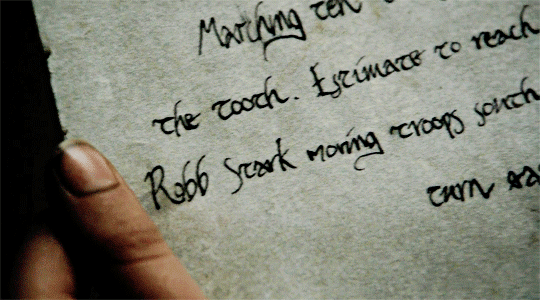 Marching ten
the tooth. Estimate to reach
Robb Stark moving troops south
turn